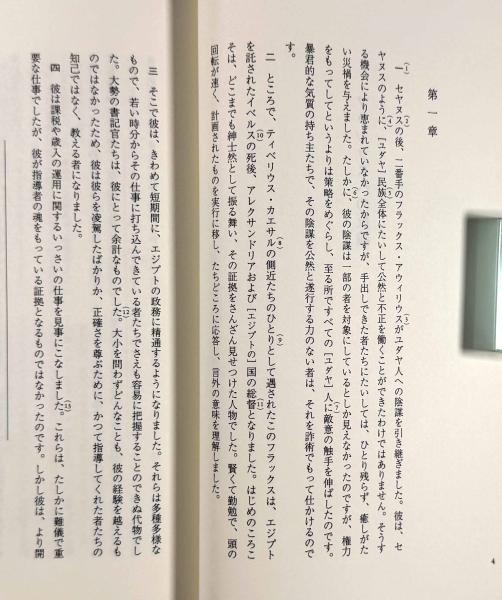 第一章
一(1) セヤヌス(2)の後、二番手のフラックス・アウィリウス(3)がユダヤ人への陰謀を引き継ぎました。彼は、セ
ヤヌスのように、(4)[ユダヤ]民族(5)全体にたいして公然と不正を働くことができたわけではありません。そうす
る機会により恵まれていなかったからですが、手出しできた者たちにたいしては、ひとり残らず、癒しがた
い災禍を与えました。たしかに、(6)彼の陰謀は一部の者を対象にしているとしか見えなかったのですが、権力
をもってしてというよりは策略をめぐらし、至る所ですべての[ユダヤ]人(7)に敵意の触手を伸ばしたのです。
暴君的な気質の持ち主たちで、その陰謀を公然と遂行する力のない者は、それを詐術でもって仕かけるので
す。
二 ところで、ティベリウス・カエサル(8)の側近たちのひとり(9)として遇されたこのフラックスは、エジプト
を託されたイベルス(10)の死後、アレクサンドリアおよび[エジプトの]国の総督(11)となりました。はじめのころこ
そは、どこまでも紳士然として振る舞い、その証拠をさんざん見せつけた人物でした。賢くて勤勉で、頭の
回転が速く、計画されたものを実行に移し、たちどころに応答し、言外の意味を理解しました。
三 そこで彼は、きわめて短期間に、エジプトの政務に精通するようになりました。それらは多種多様な
もので、若い時分からその仕事に打ち込んできている者たちでさえも容易に把握することのできぬ代物でし
た。大勢の書記官たちは、彼にとって余計なものでした。(12)大小を問わずどんなことも、彼の経験を越えるも
のではなかったため、彼は彼らを凌駕したばかりか、正確さを尊ぶために、かつて指導してくれた者たちの
知己ではなく、教える者になりました。
四 彼は課税や歳入の運用に関するいっさいの仕事を見事にこなしました。(13)これらは、たしかに難儀で重
要な仕事でしたが、彼が指導者の魂をもっている証拠となるものではなかったのです。しかし彼は、より開
4